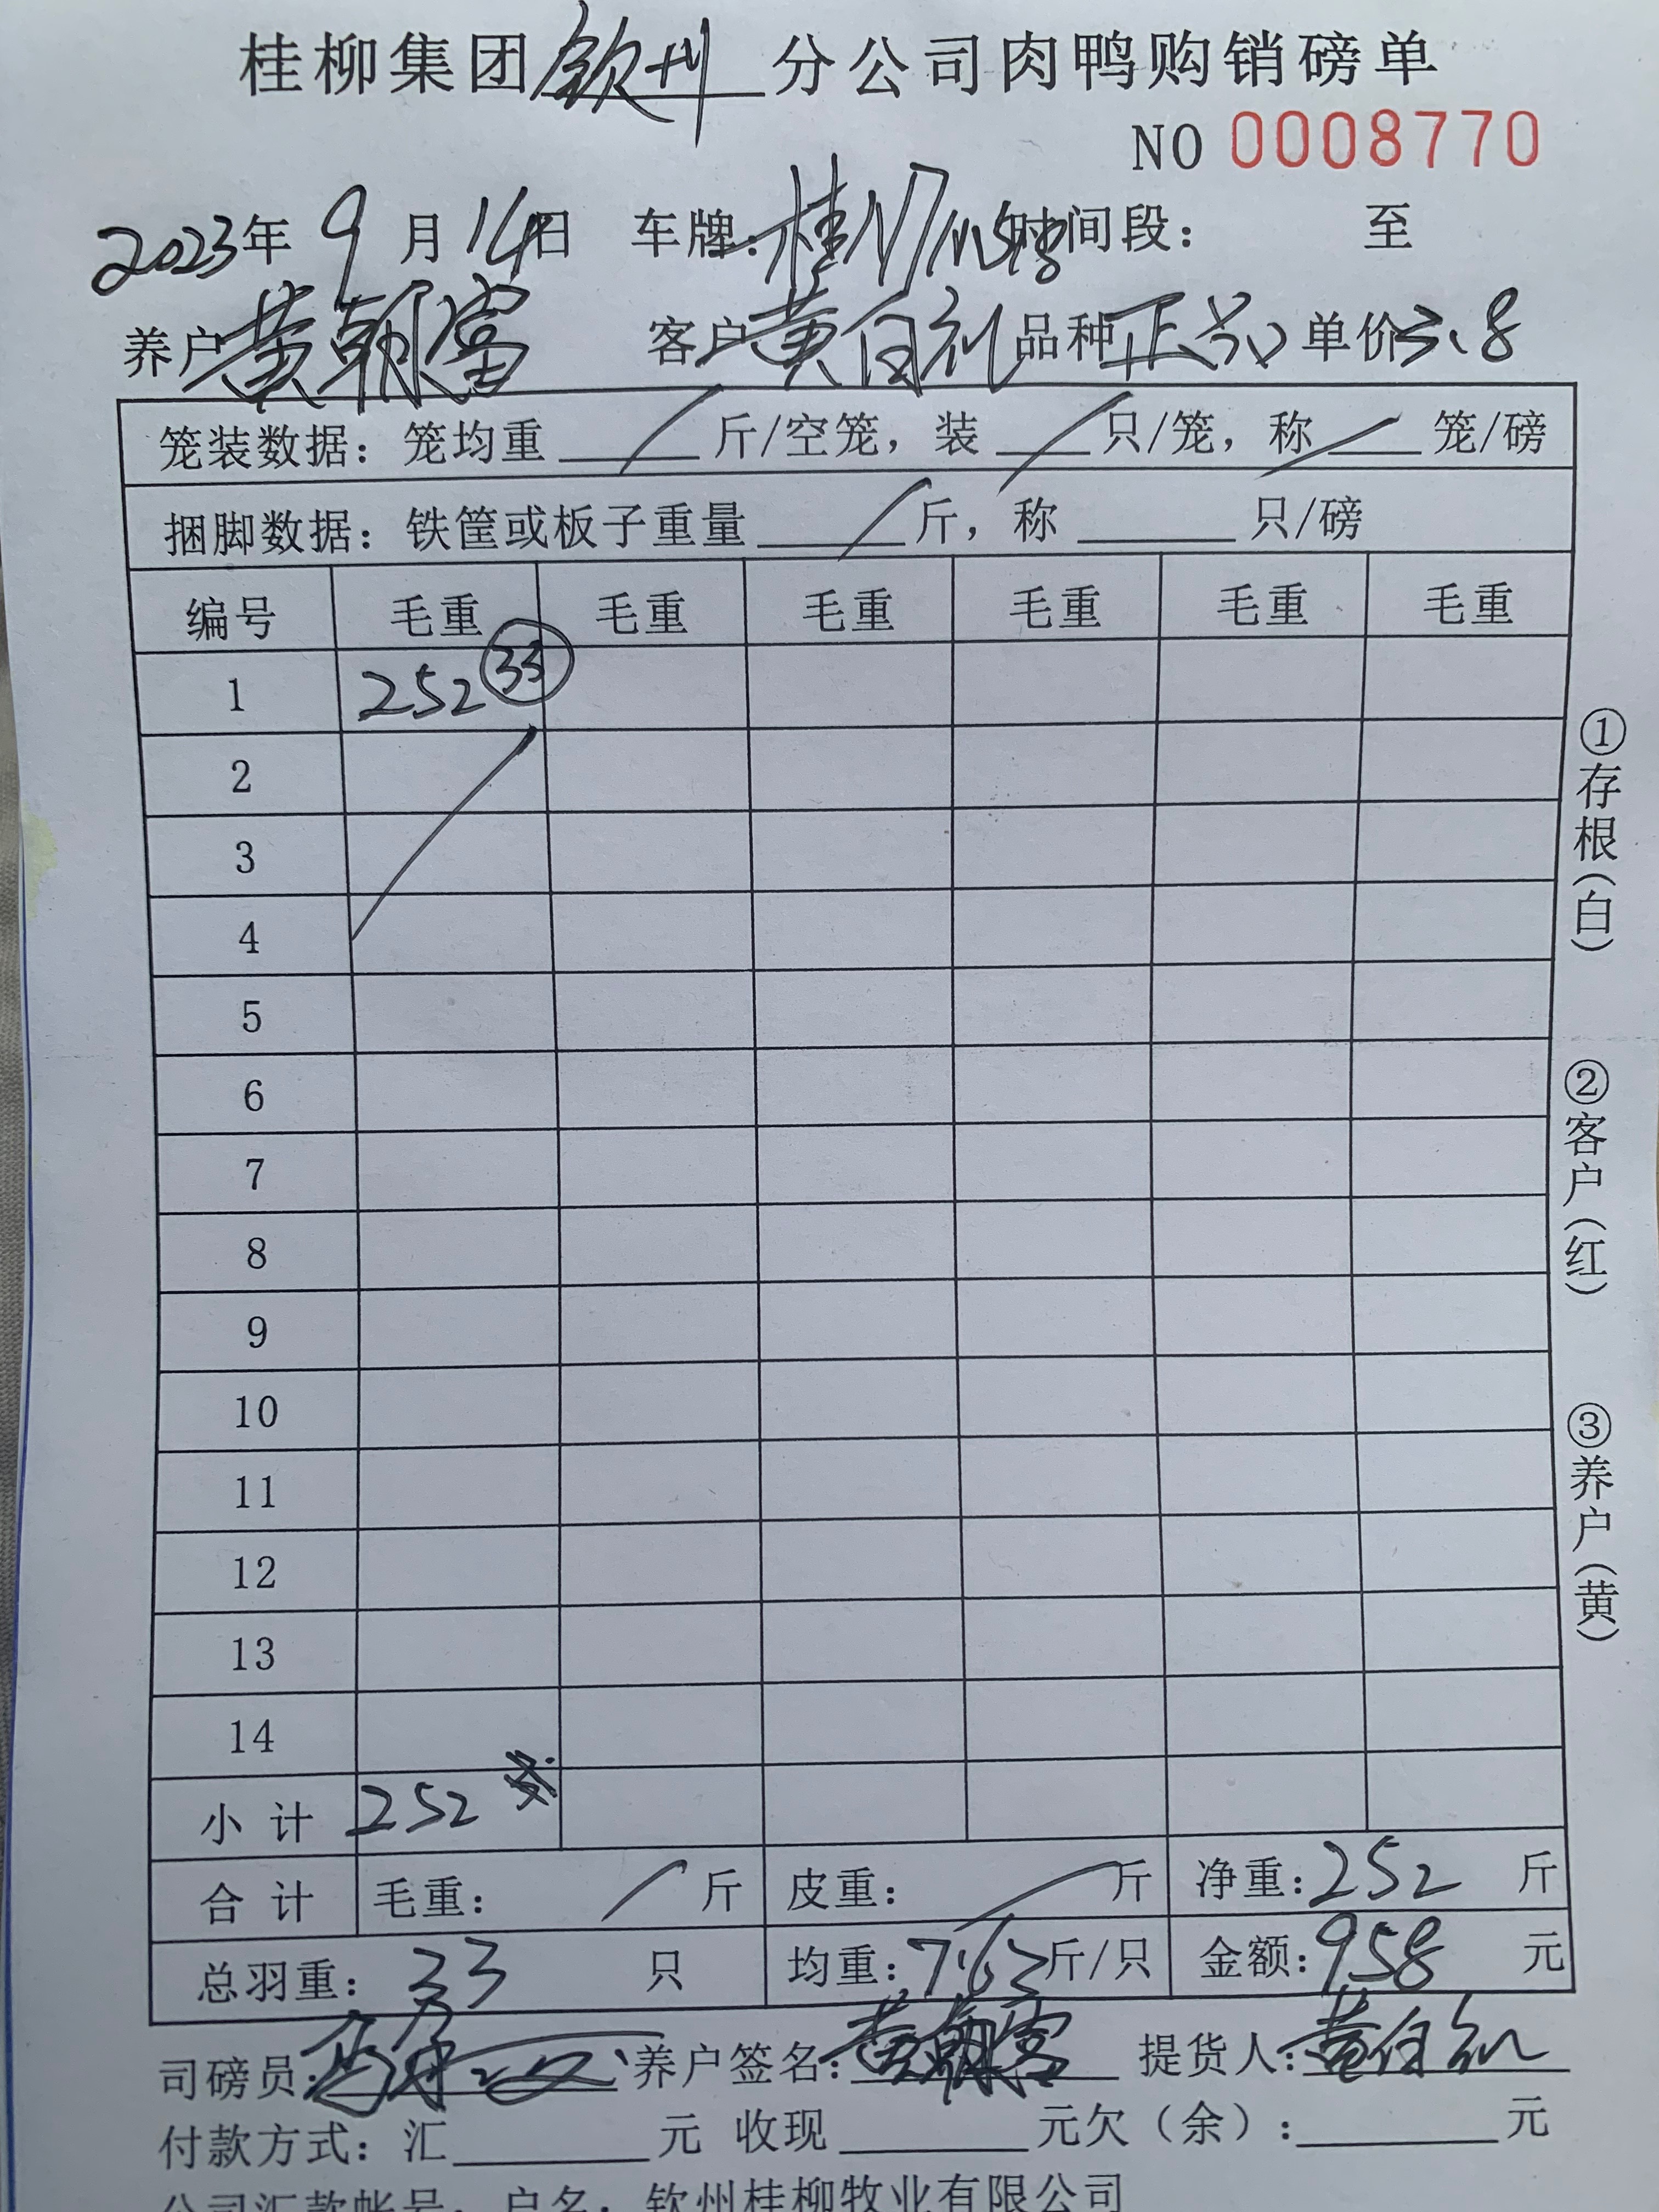 桂柳集团钦州分公司肉鸭购销磅单
NO 0008770
2023年9月14日 车牌:桂N 时间段: 至
养户黄朝富 客户黄白礼 品种正 单价3.8
笼装数据:笼均重 斤/空笼,装 只/笼,称 笼/磅
捆脚数据:铁筐或板子重量 斤,称 只/磅
编号 毛重 毛重 毛重 毛重 毛重 毛重
1 252 33
2
3
4
5
6
7
8
9
10
11
12
13
14
小计 252
合计 毛重: 斤 皮重: 斤 净重:252 斤
总羽重:33 只 均重:7.63斤/只 金额:958 元
司磅员: 养户签名:黄朝富 提货人:黄白礼
付款方式:汇 元 收现 元欠(余): 元
公司汇款帐号:户名:钦州桂柳牧业有限公司
①存根(白)
②客户(红)
③养户(黄)